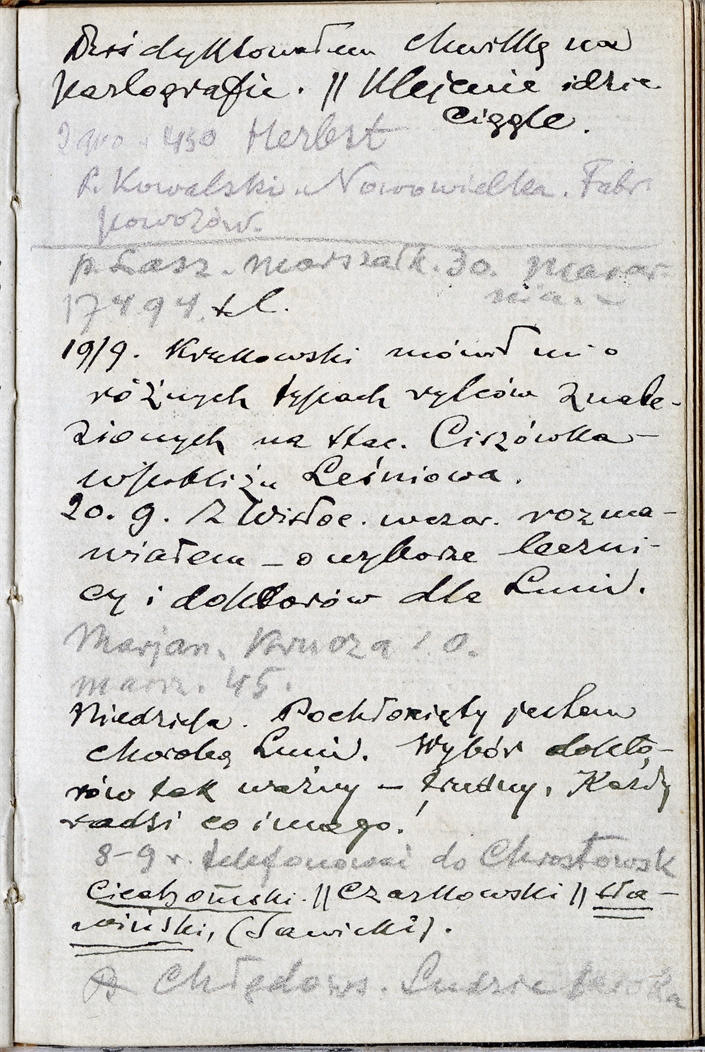 Dziś dyktowałem chwilkę na
parlografie. || Klejenie idzie
ciągle.
450 Herbst
P. Kowalski. Nowowielka. Fabr.
powozów.
p. Łasz. Marszałk. 30. Manar-
nia. -
17494. tel.
19/9. Krukowski mówił mi o
różnych typach rylców znale-
zionych na stac. Ciszówka -
w pobliżu Leśniowa.
20. 9. Z Wisłoc. wczor. rozma-
wiałem - o wyborze leczni-
cy i doktorów dla Luni.
Marjan. Krucza 10.
marsz. 45.
Niedziela. Pochłonięty jestem
chorobą Luni. Wybór dokto-
rów tak ważny - trudny. Każdy
radzi co innego!
8-9 r. telefonować do Chrostowsk
Ciechomski. || Czarkowski || Sła-
wiński, (Sawicki).
Chłędows. Ludzie